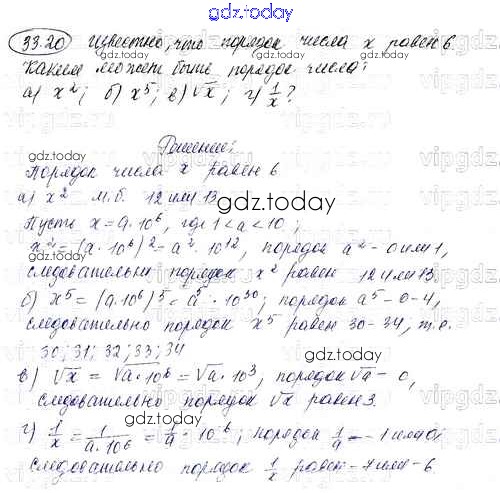 gdz.today
33.20 Известно, что порядок числа x равен 6.
gdz.today
Каким может быть порядок числа:
а) x²; б) x⁵; в) √x; г) 1/x?
Решение:
gdz.today
Порядок числа x равен 6.
а) x² м.б. 12 или 13
gdz.today
Пусть x = a·10⁶, где 1<a<10;
x² = (a·10⁶)² = a²·10¹², порядок a² - 0 или 1,
следовательно порядок x² равен 12 или 13.
б) x⁵ = (a·10⁶)⁵ = a⁵·10³⁰; порядок a⁵ - 0-4,
следовательно порядок x⁵ равен 30-34, т.е.
30; 31; 32; 33; 34
gdz.today
в) √x = √a·10⁶ = √a·10³, порядок √a - 0,
следовательно порядок √x равен 3.
gdz.today
г) 1/x = 1/a·10⁶ = 1/a·10⁻⁶; порядок 1/a - -1 или 0
следовательно порядок 1/x равен -7 или -6.
gdz.today